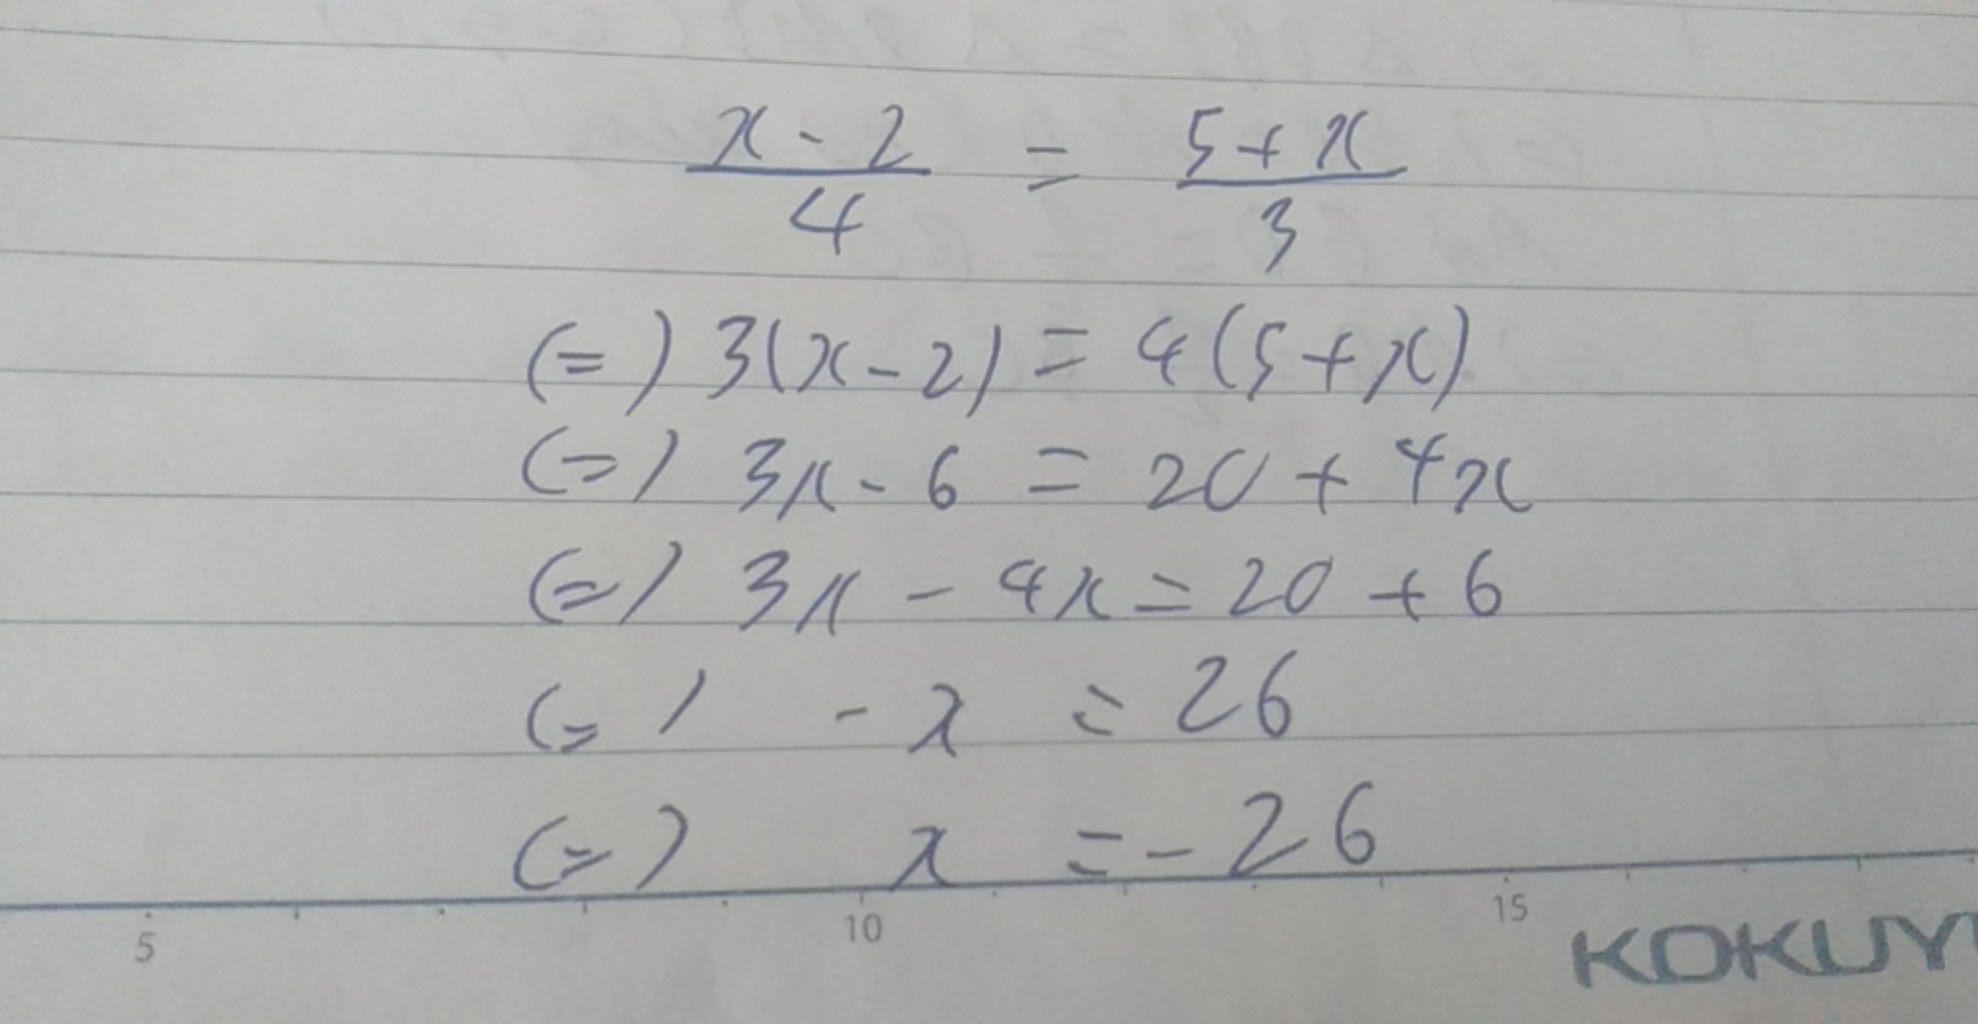 x - 2 / 4 = 5 + x / 3
(=) 3(x - 2) = 4(5 + x)
(=) 3x - 6 = 20 + 4x
(=) 3x - 4x = 20 + 6
(=) - x = 26
(=) x = - 26
5 10 15
KOKUY